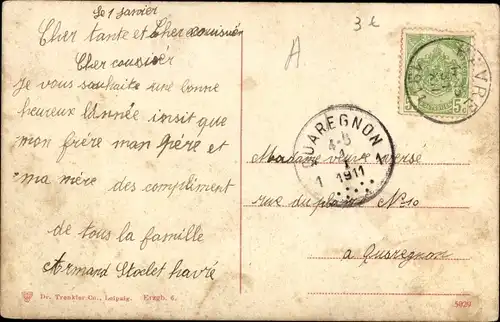 Le 1 Janvier
Cher tante et Cher cousin
Cher cousier
Je vous souhaite une bonne
heureux Année insit que
mon frère man père et
ma mère des compliment
de tous la famille
Armand Stoclet havré
3e
A.
5c
HAVRE
QUAREGNON
4-5
1 1911
Madame veuve versé
rue du plana No 10
a Quaregnon
Dr. Trenkler Co., Leipzig. Erzgb. 6.
5029